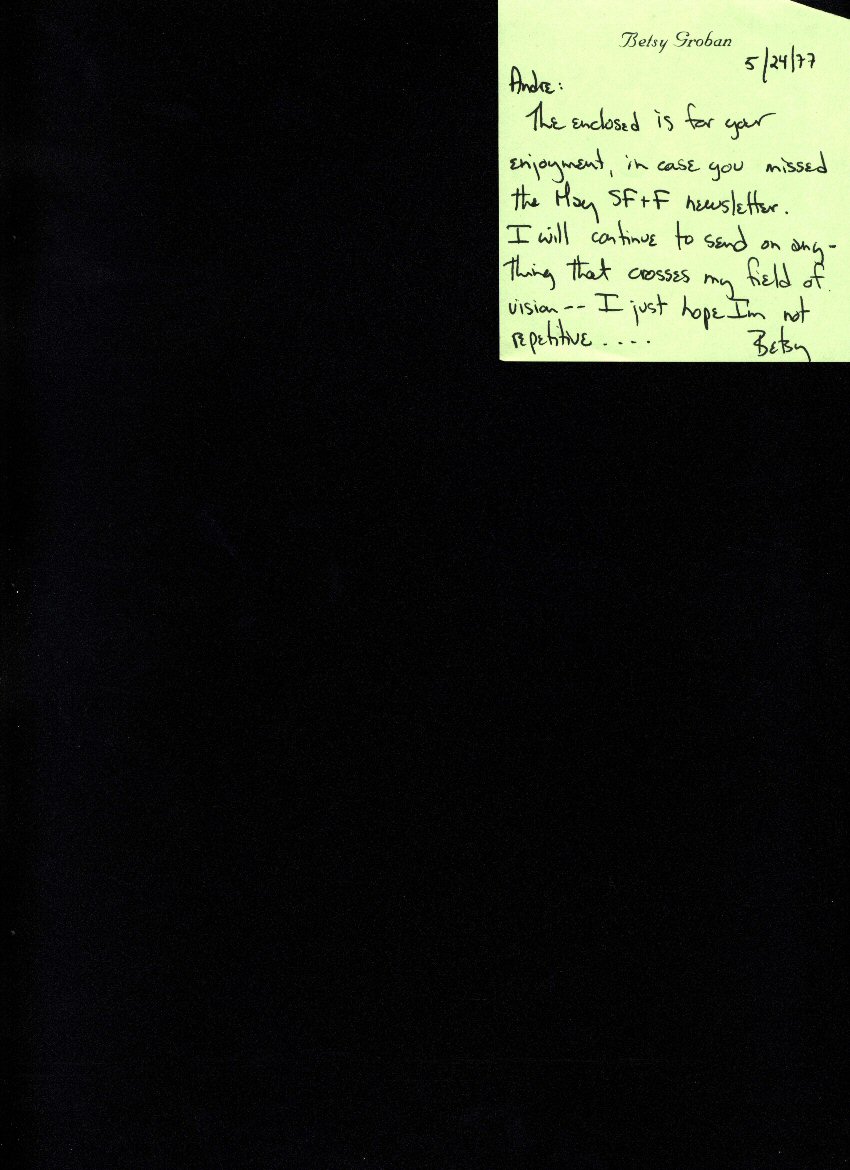 Betsy Groban
5/24/77
Andre:
The enclosed is for your
enjoyment, in case you missed
the May SF+F newsletter.
I will continue to send on any-
thing that crosses my field of
vision -- I just hope I'm not
repetitive . . . .
Betsy